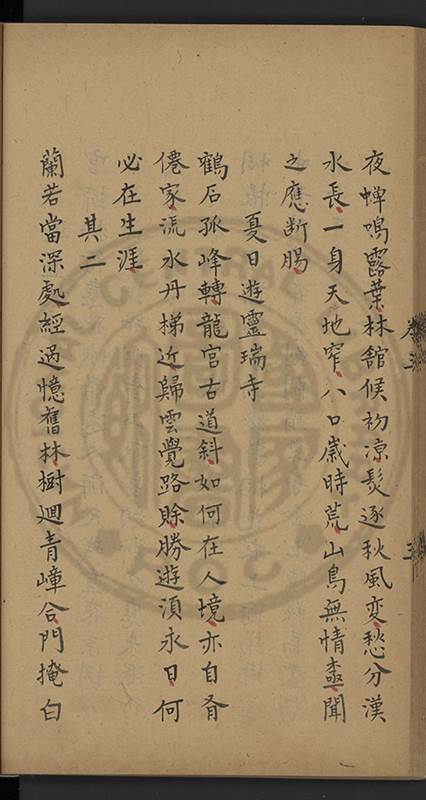 夜蟬鳴露葉林館候初凉髮逐秋風変愁分漢
水長一身天地窄八口歲時荒山鳥無情極聞
之應断腸
夏日遊靈瑞寺
鶴石孤峰轉龍宮古道斜如何在人境亦自有
僊家流水丹梯近歸雲覺路賒勝遊須永日何
必在生涯
其二
蘭若當深處經過憶舊林樹迴青嶂合門掩白